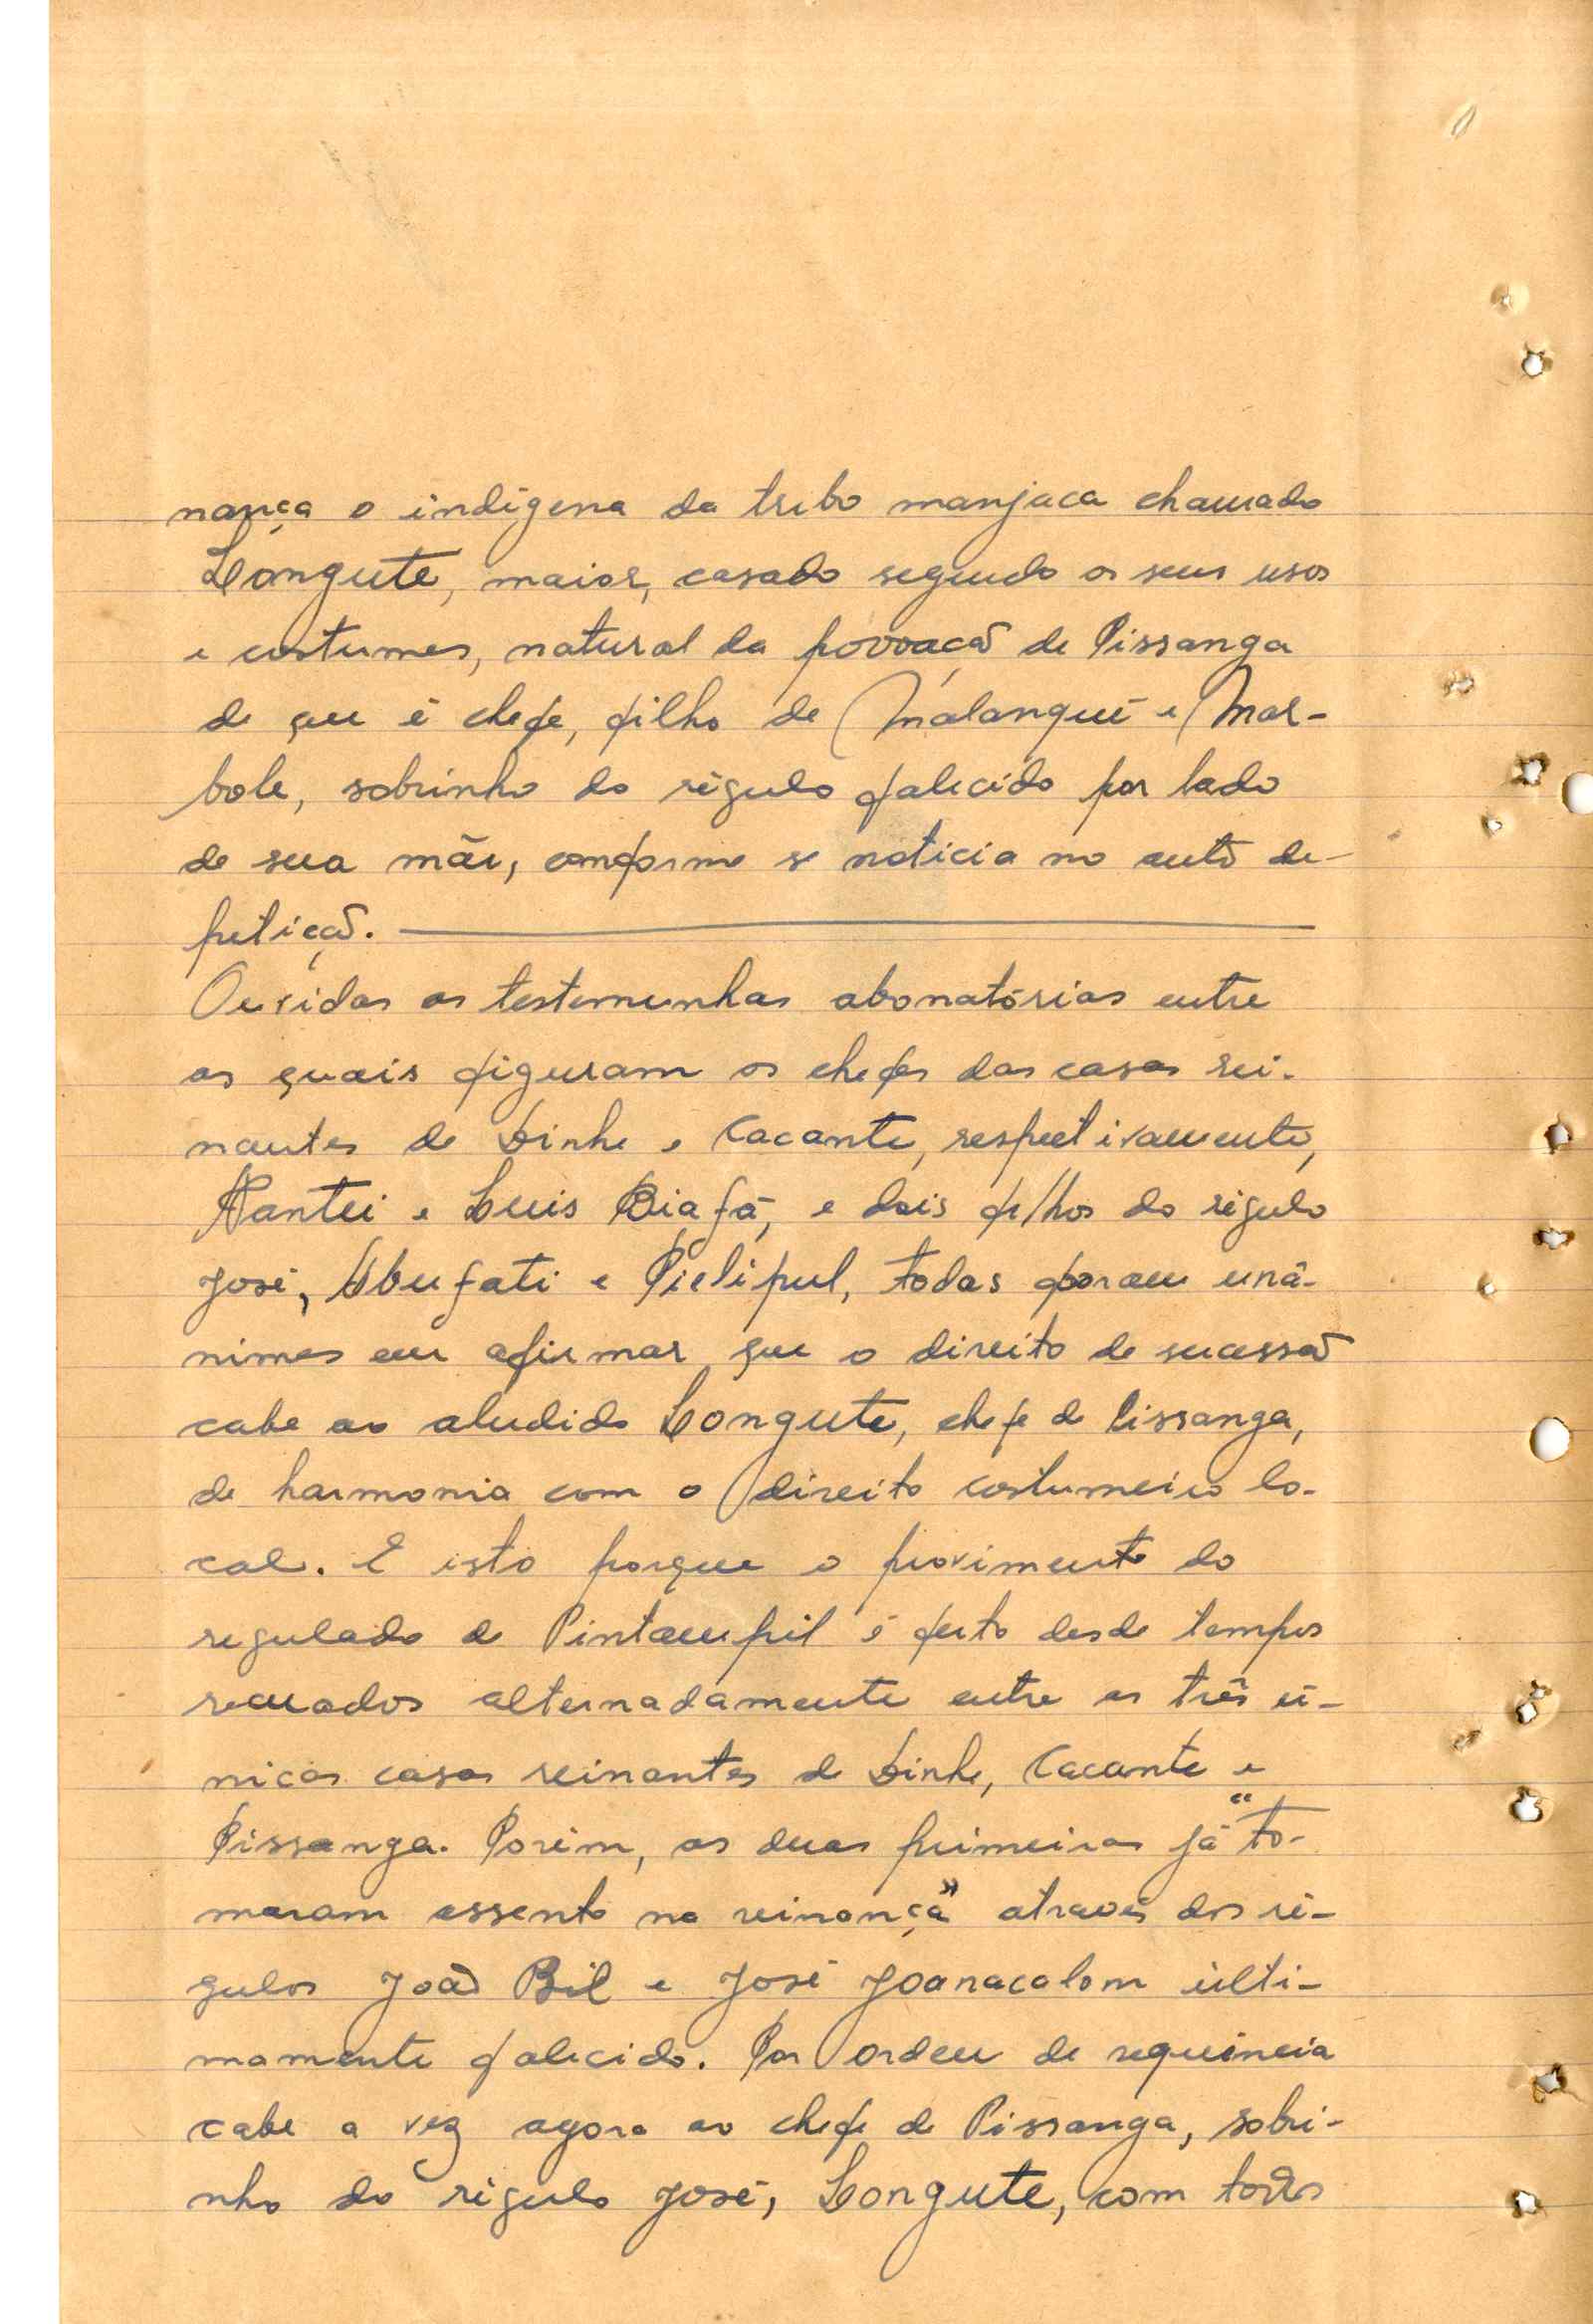 nança o indígena da tribo manjaca chamado
Longute, maior, casado segundo os seus usos
e costumes, natural da povoação de Pissanga
de que é chefe, filho de Malanqué e Mar-
bole, sobrinho do régulo falecido por lado
de sua mãe, conforme se noticia no auto de
petição.
Ouvidas as testemunhas abonatórias entre
as quais figuram os chefes das casas rei-
nantes de Binhe e Cacante, respectivamente,
Nantei e Luis Biafá, e dois filhos do régulo
José, Ubufati e Pielipul, todas foram unâ-
nimes em afirmar que o direito de sucessão
cabe ao aludido Longute, chefe de Pissanga,
de harmonia com o direito costumeiro lo-
cal. E isto porque o provimento do
regulado de Pintampil é feito desde tempos
recuados alternadamente entre as três ú-
nicas casas reinantes de Binhe, Cacante e
Pissanga. Porém, as duas primeiras já "to-
maram assento na reinança" através dos ré-
gulos João Bil e José Joanacalom últi-
mamente falecido. Por ordem de sequência
cabe a vez agora ao chefe de Pissanga, sobri-
nho do régulo José, Longute, com todos